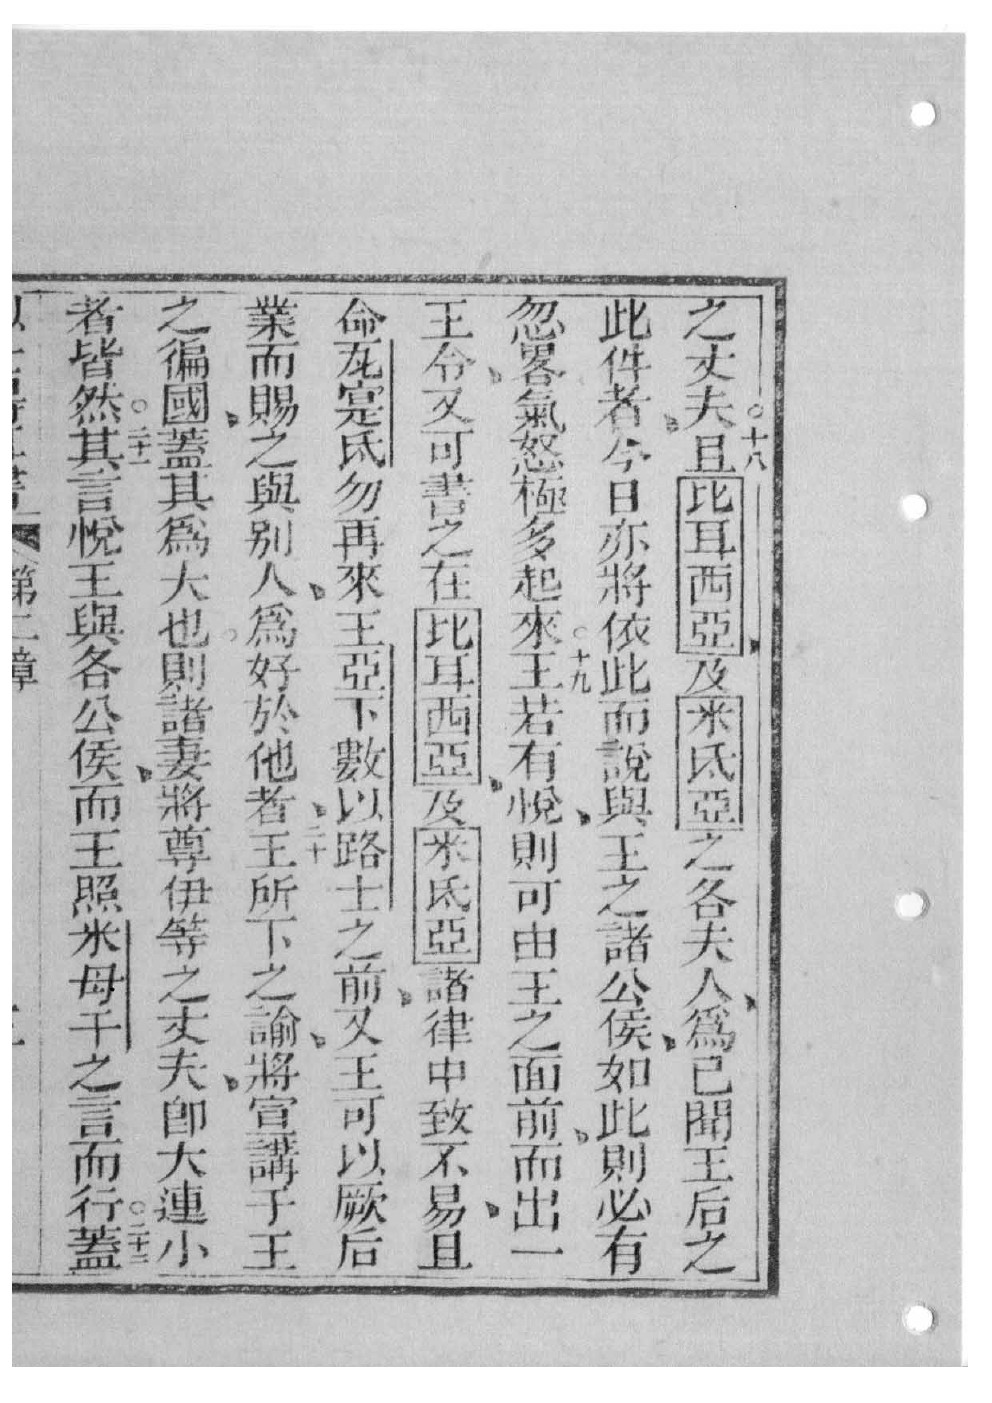 之丈夫○十八且比耳西亞及米氐亞之各夫人爲已聞王后之
此件者今日亦將依此而說與王之諸公侯如此則必有
忽畧氣怒極多起來○十九王若有悅則可由王之面前而出一
王令又可書之在比耳西亞及米氐亞諸律中致不易且
命瓦寔氐勿再來王亞下數以路士之前又王可以厥后
業而賜之與别人爲好於他者二十王所下之諭將宣講于王
之徧國蓋其爲大也○則諸妻將尊伊等之丈夫卽大連小
者皆然○二十一其言悅王與各公侯而王照米母千之言而行○二十二蓋
第二章